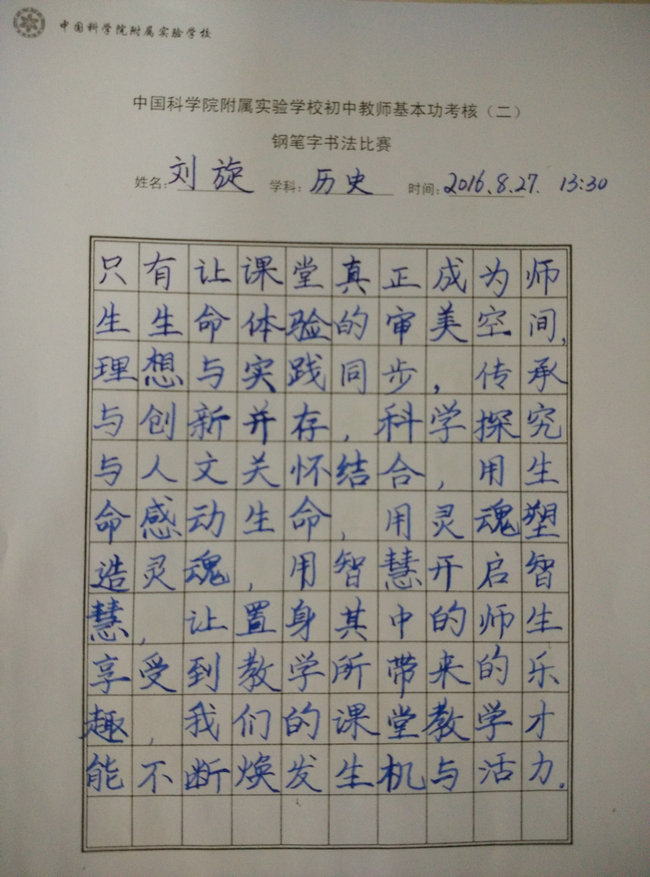 中国科学院附属实验学校
中国科学院附属实验学校初中教师基本功考核（二）
钢笔字书法比赛
姓名：刘旋 学科：历史 时间：2016.8.27. 13:30
只有让课堂真正成为师
生生命体验的审美空间，
理想与实践同步，传承
与创新并存，科学探究
与人文关怀结合，用生
命感动生命，用灵魂塑
造灵魂，用智慧开启智
慧，让置身其中的师生
享受到教学所带来的乐
趣，我们的课堂教学才
能不断焕发生机与活力。